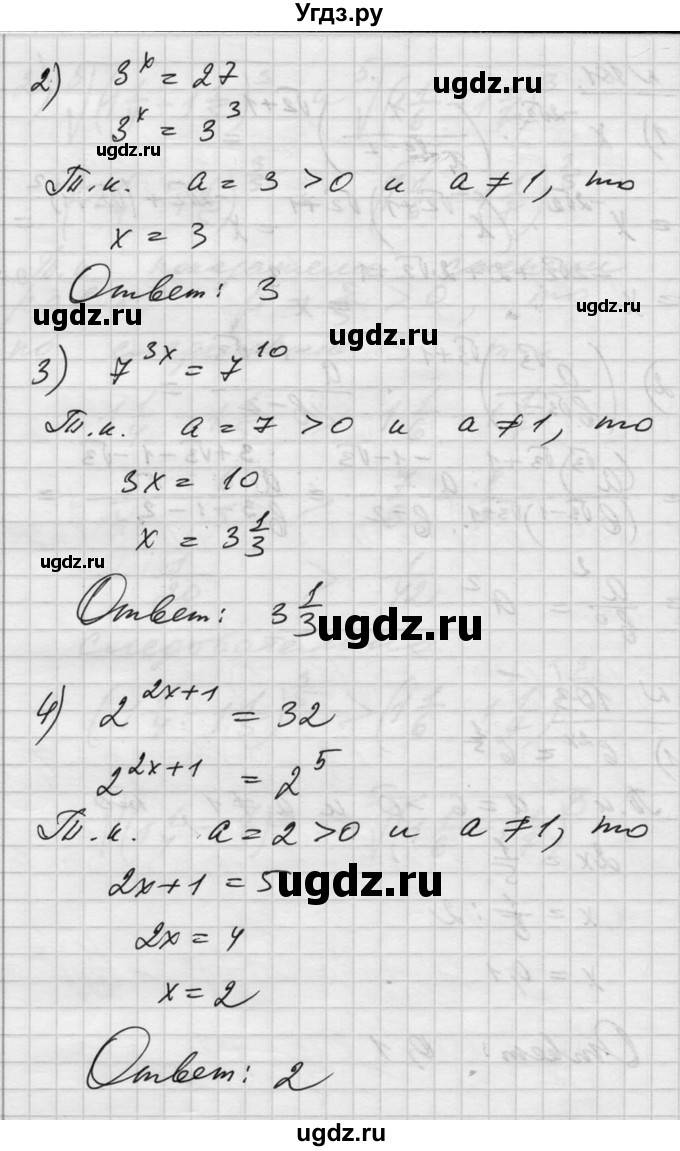 Угдз.ру
2) 3^x = 27
ugdz.ru
3^x = 3^3
ugdz.ru
Т.к. a = 3 > 0 и a ≠ 1, то
x = 3
Ответ: 3
ugdz.ru
ugdz.ru
ugdz.ru
3) 7^{3x} = 7^{10}
Т.к. a = 7 > 0 и a ≠ 1, то
3x = 10
x = 3 1/3
ugdz.ru
Ответ: 3 1/3
ugdz.ru
4) 2^{2x+1} = 32
2^{2x+1} = 2^5
Т.к. a = 2 > 0 и a ≠ 1, то
2x+1 = 5
ugdz.ru
2x = 4
x = 2
Ответ: 2
ugdz.ru